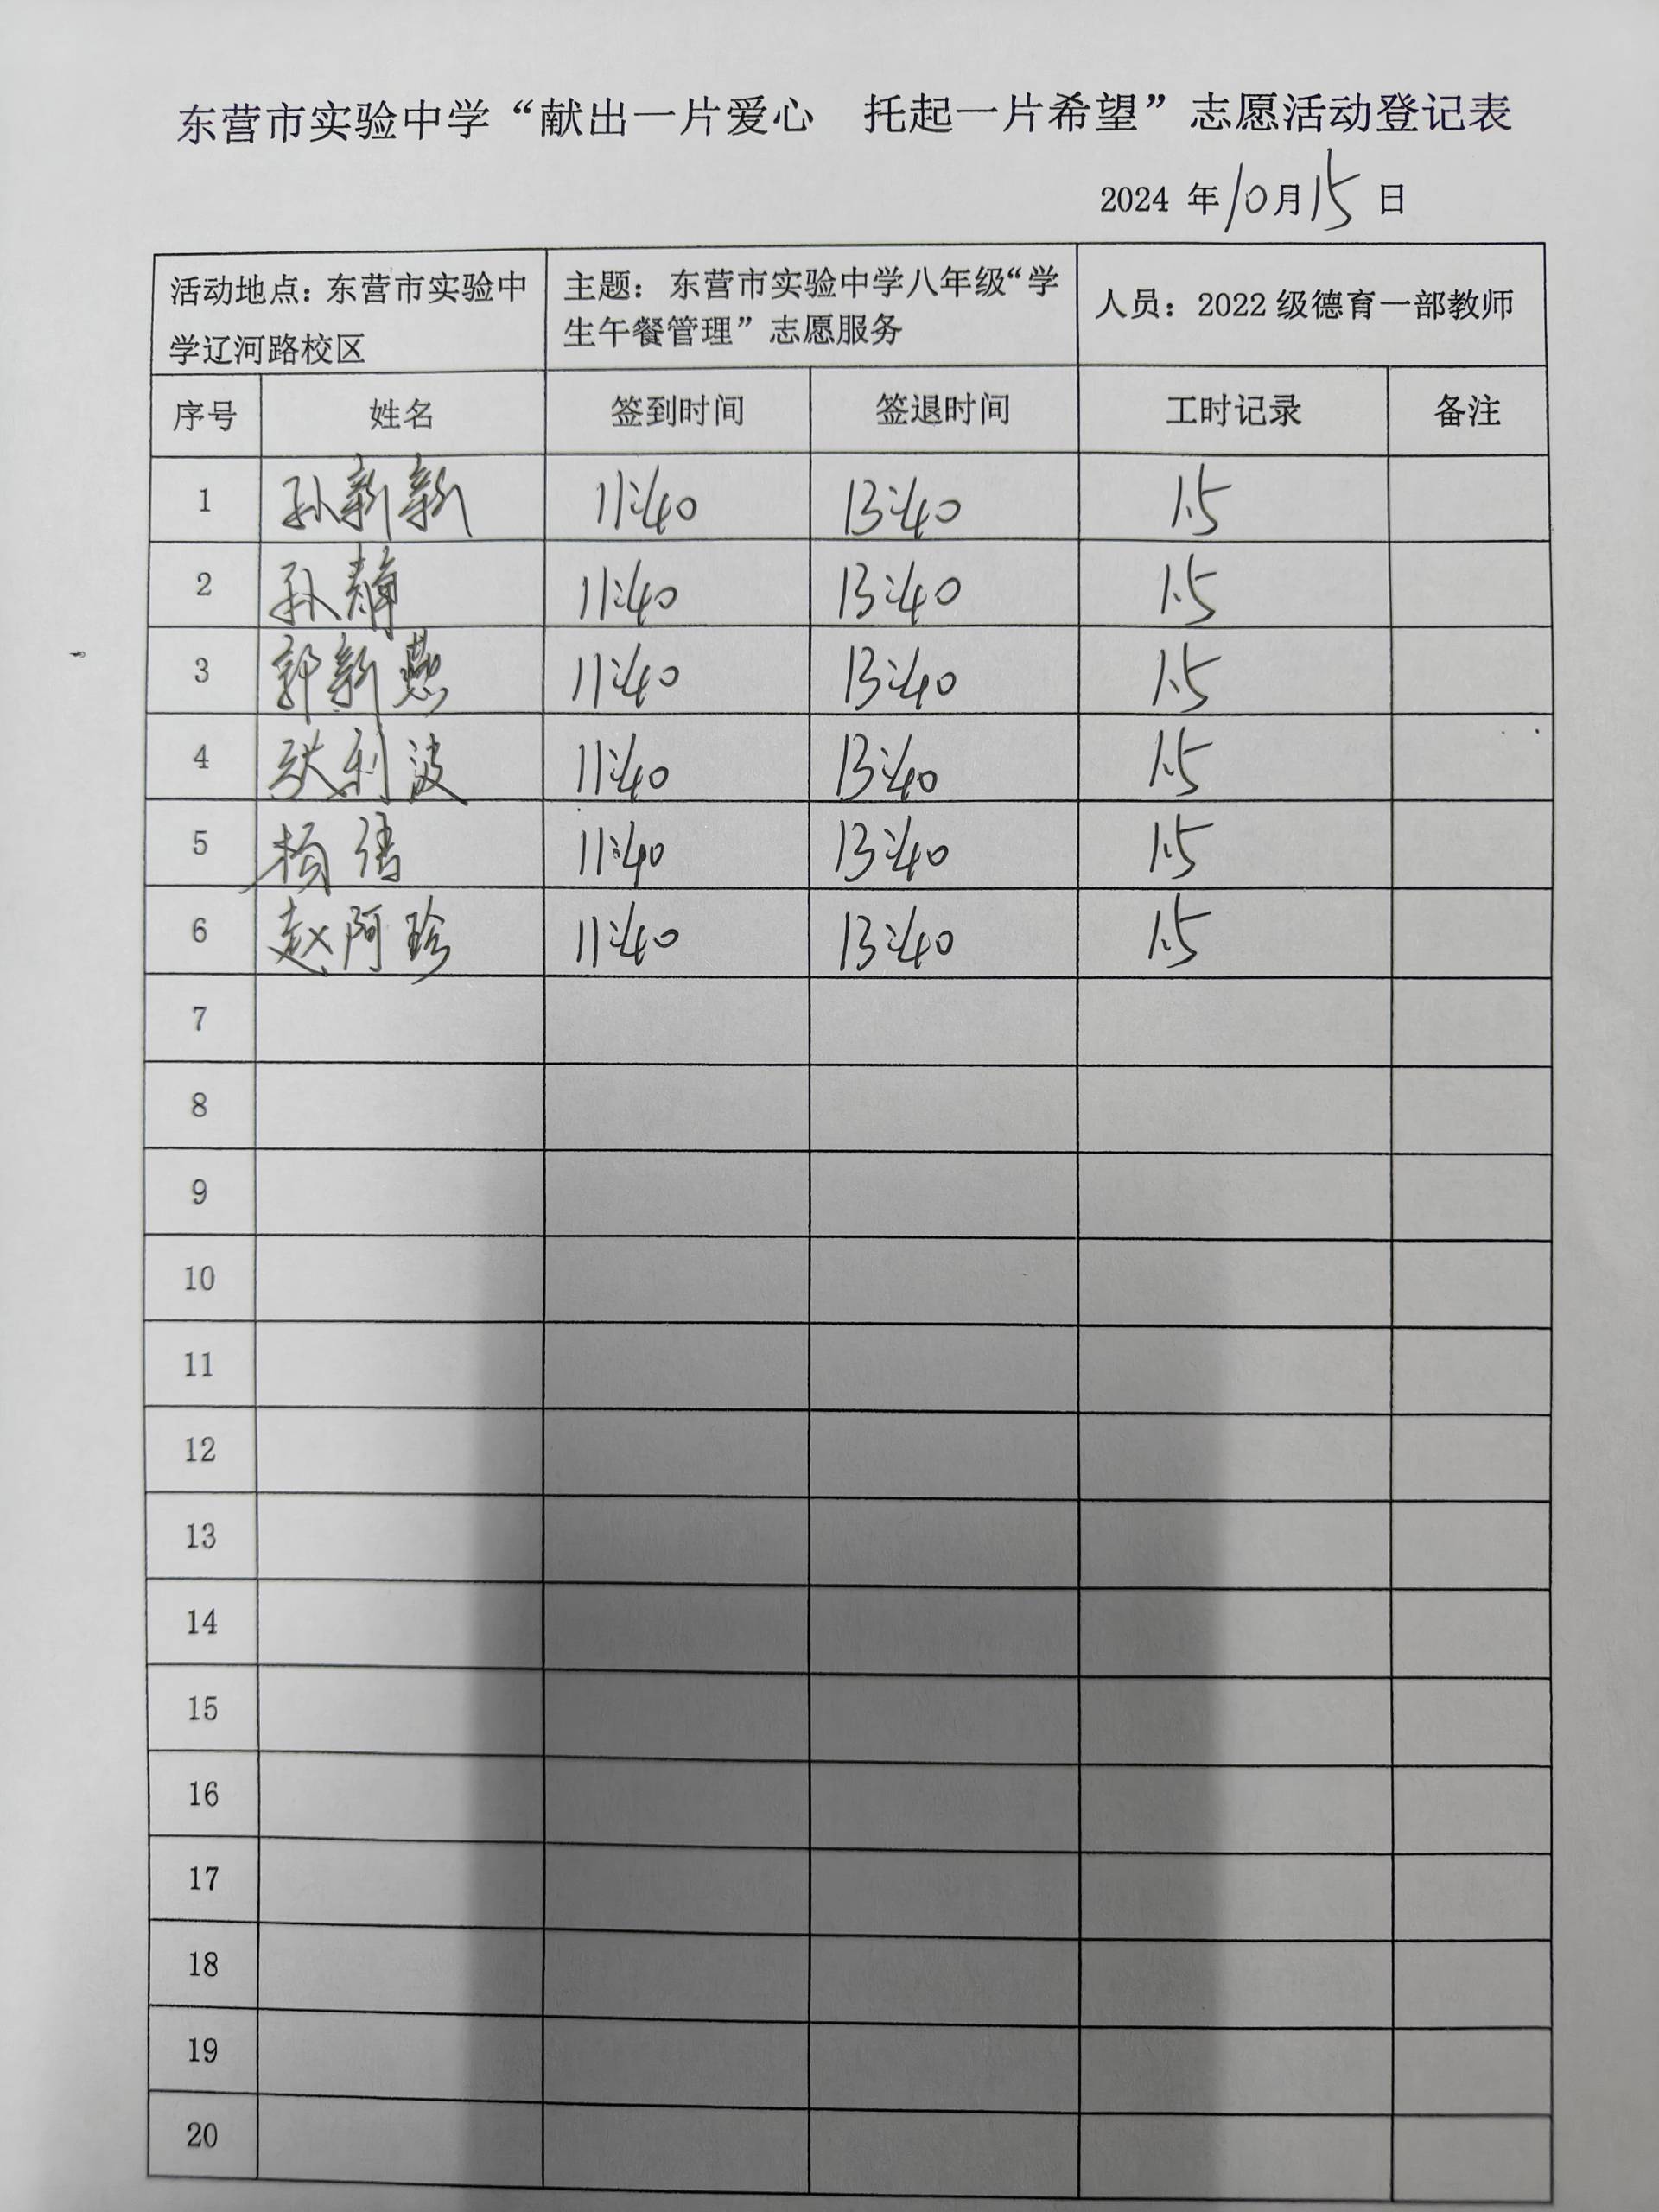 东营市实验中学“献出一片爱心 托起一片希望”志愿活动登记表
2024 年10月15日
活动地点：东营市实验中
学辽河路校区
主题：东营市实验中学八年级“学
生午餐管理”志愿服务
人员：2022 级德育一部教师
序号 姓名 签到时间 签退时间 工时记录 备注
1 孙新新 11:40 13:40 1.5
2 孙静 11:40 13:40 1.5
3 郭新燕 11:40 13:40 1.5
4 利波 11:40 13:40 1.5
5 杨倩 11:40 13:40 1.5
6 赵阿珍 11:40 13:40 1.5
7
8
9
10
11
12
13
14
15
16
17
18
19
20